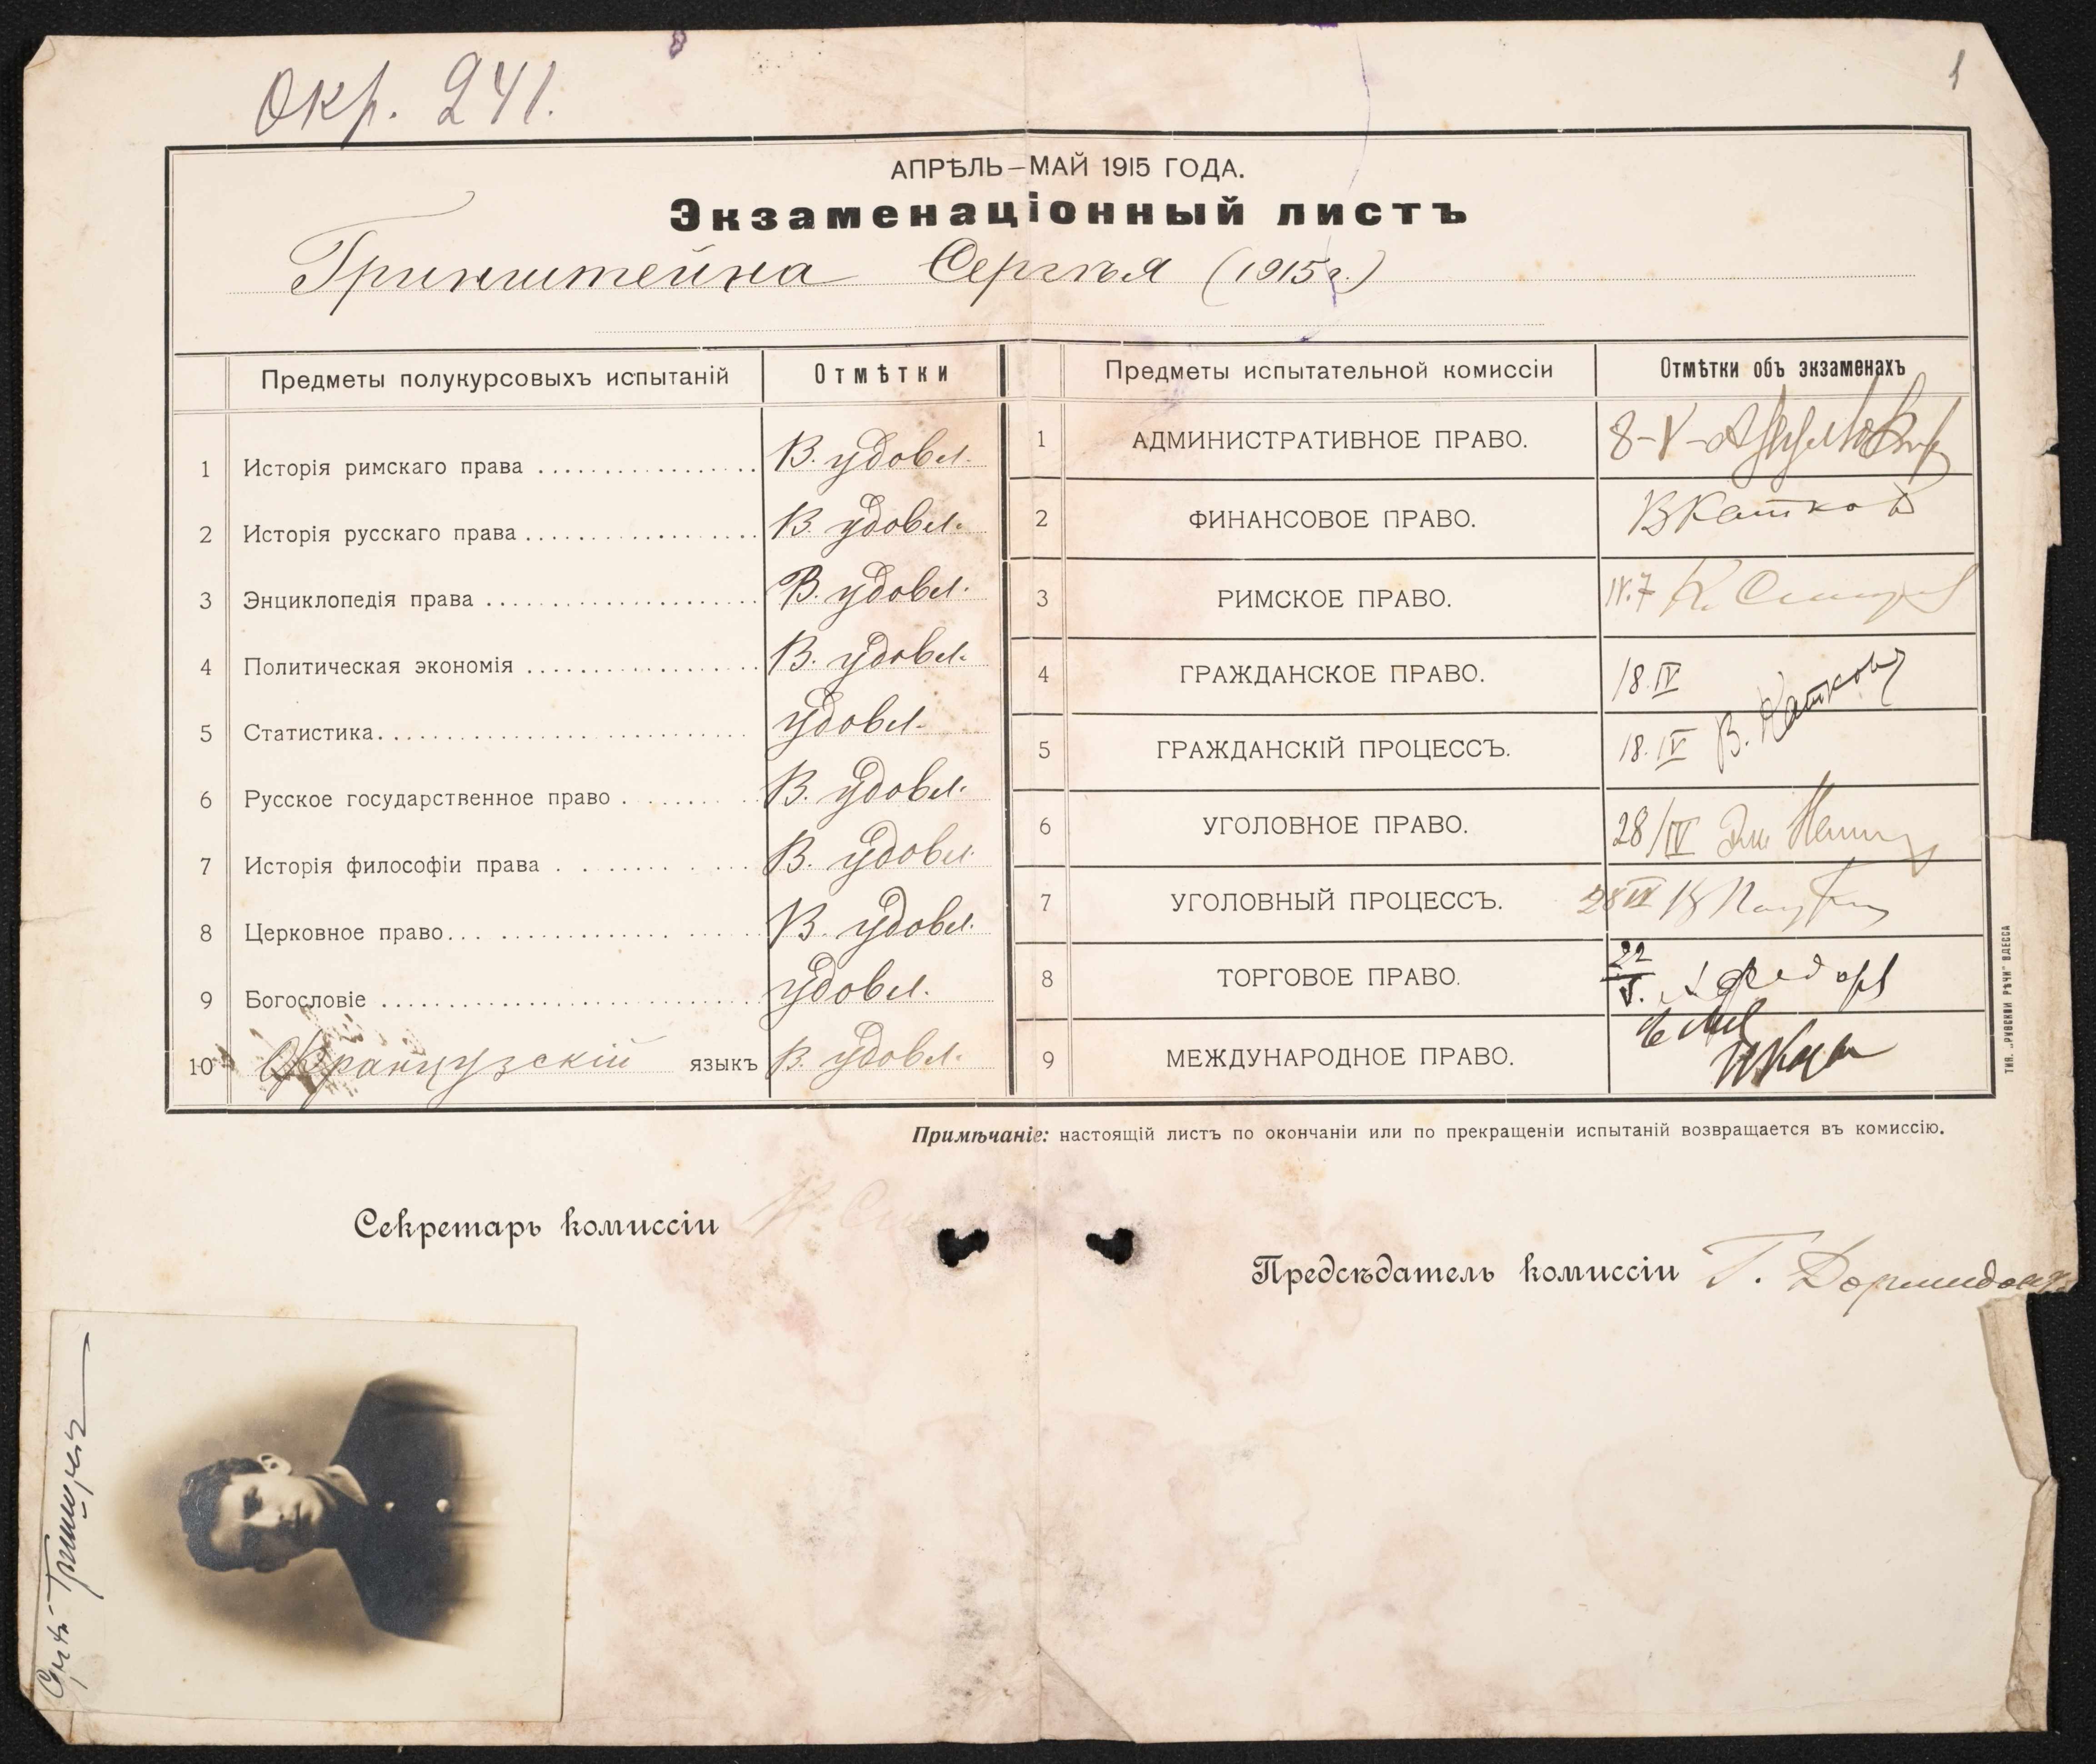 Окр. 241.
1
АПРѢЛЬ–МАЙ 1915 ГОДА.
Экзаменаціонный листъ
Гринштейна Сергѣя (1915 г.)
Предметы полукурсовыхъ испытаній
Отмѣтки
1 Исторія римскаго права В. удовл.
2 Исторія русскаго права В. удовл.
3 Энциклопедія права В. удовл.
4 Политическая экономія В. удовл.
5 Статистика удовл.
6 Русское государственное право В. удовл.
7 Исторія философіи права В. удовл.
8 Церковное право В. удовл.
9 Богословіе удовл.
10 Французскій языкъ В. удовл.
Предметы испытательной комиссіи
Отмѣтки объ экзаменахъ
1 АДМИНИСТРАТИВНОЕ ПРАВО. 8-V-
2 ФИНАНСОВОЕ ПРАВО. В Катков
3 РИМСКОЕ ПРАВО. IV.7
4 ГРАЖДАНСКОЕ ПРАВО. 18.IV
5 ГРАЖДАНСКІЙ ПРОЦЕССЪ. 18.IV В. Катковъ
6 УГОЛОВНОЕ ПРАВО. 28/IV
7 УГОЛОВНЫЙ ПРОЦЕССЪ. 28 IV
8 ТОРГОВОЕ ПРАВО. 22/V.
9 МЕЖДУНАРОДНОЕ ПРАВО.
ТИП. „РУССКОЙ РѢЧИ" ОДЕССА
Примѣчаніе: настоящій листъ по окончаніи или по прекращеніи испытаній возвращается въ комиссію.
Секретарь комиссіи
Предсѣдатель комиссіи Г.
Сергѣй Гринштейнъ